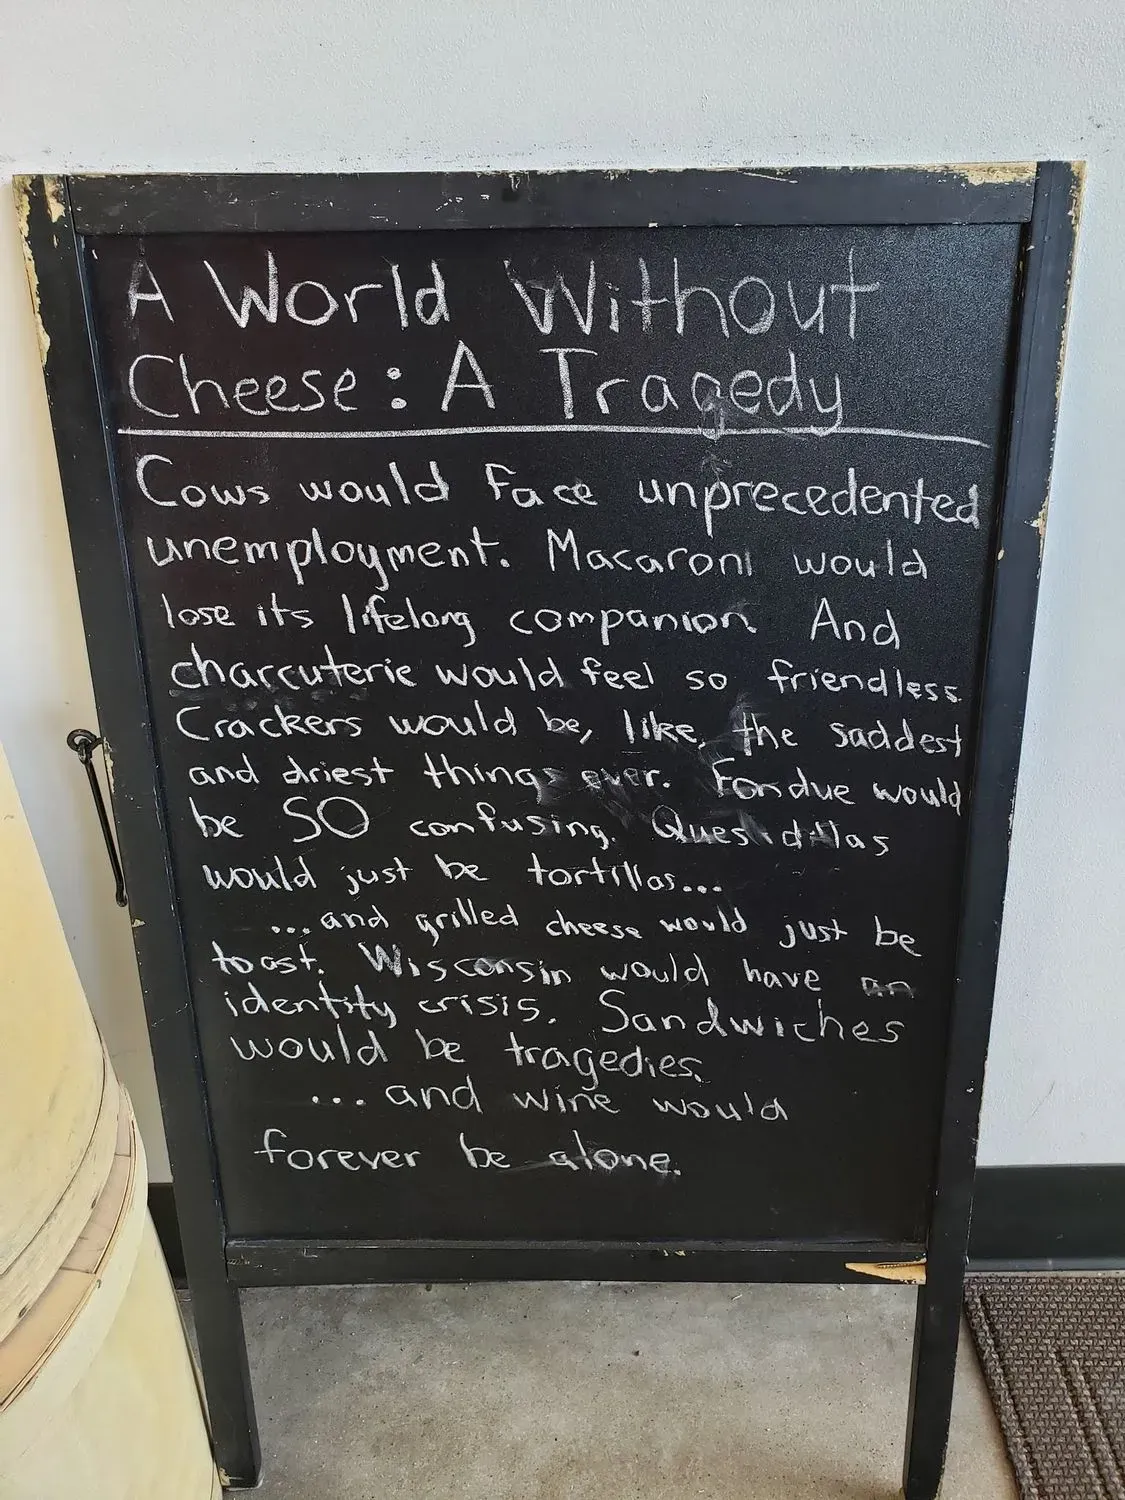 A World Without
Cheese: A Tragedy
Cows would face unprecedented
unemployment. Macaroni would
lose its lifelong companion And
charcuterie would feel so friendless.
Crackers would be, like, the saddest
and driest things ever. Fondue would
be SO confusing. Quesidillas
would just be tortillas...
...and grilled cheese would just be
toast. Wisconsin would have an
identity crisis. Sandwiches
would be tragedies.
...and wine would
forever be alone.